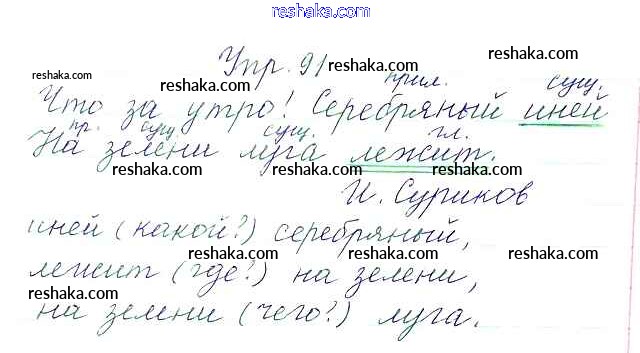 reshaka.com
Упр. 91
reshaka.com
reshaka.com
reshaka.com
reshaka.com
прил. сущ.
Что за утро! Серебряный иней
reshaka.com
reshaka.com
пр. сущ. сущ. гл.
На зелени луга лежит.
reshaka.com
reshaka.com
И. Суриков
reshaka.com
иней (какой?) серебряный,
reshaka.com
reshaka.com
лежит (где?) на зелени,
reshaka.com
reshaka.com
на зелени (чего?) луга.
reshaka.com